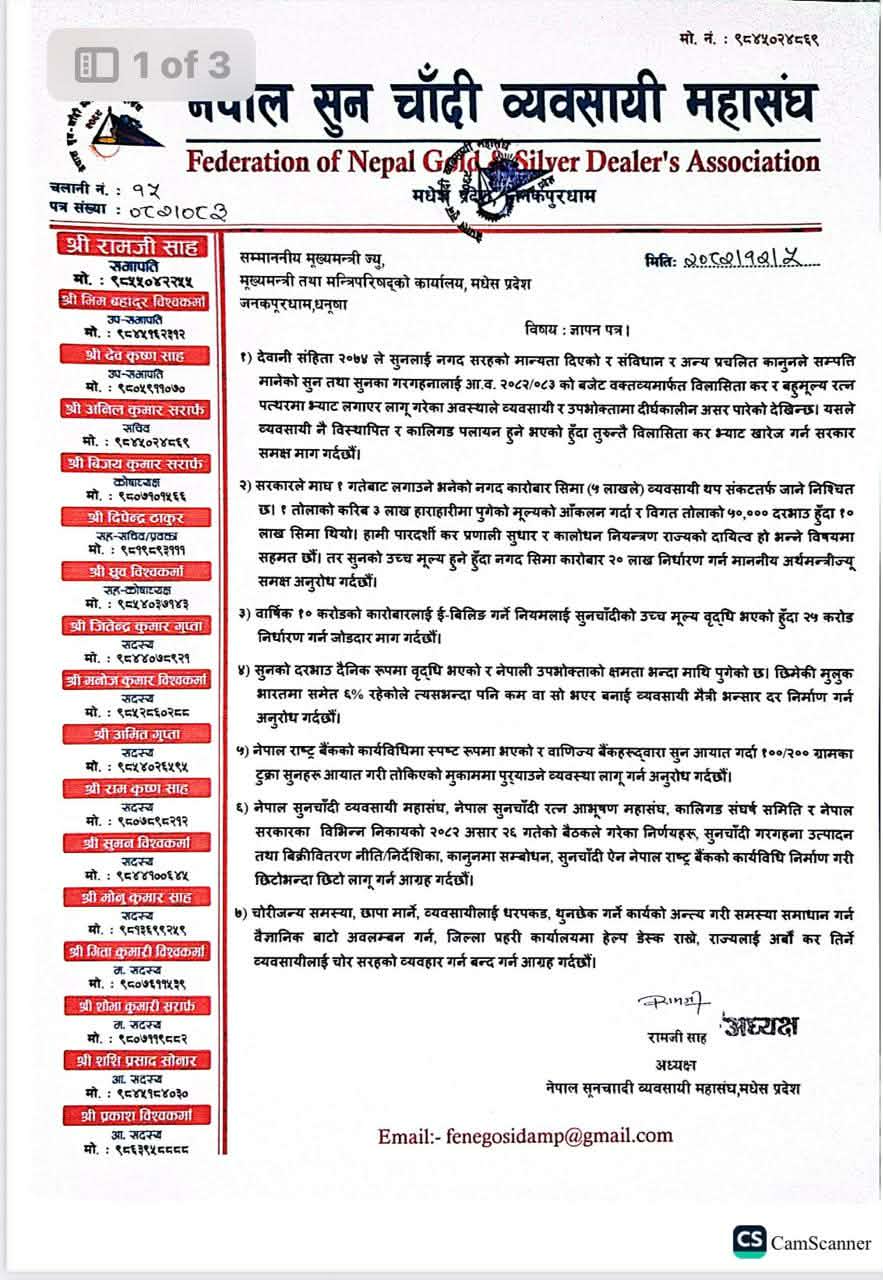 1 of 3
मो. नं. : ९८४५०२४८६९
नेपाल सुन चाँदी व्यवसायी महासंघ
Federation of Nepal Gold & Silver Dealer's Association
मधेश प्रदेश, जनकपुरधाम
चलानी नं. : १५
पत्र संख्या : ०८२।०८३
मिति: २०८२।१२।५
श्री रामजी साह
सभापति
मो. : ९८५५०४२२५५
श्री भिम बहादुर विश्वकर्मा
उप-सभापति
मो. : ९८४५१६२३१२
श्री देव कृष्ण साह
उप-सभापति
मो. : ९८०५९११०७०
श्री अनिल कुमार सरार्फ
सचिव
मो. : ९८४५०२४८६९
श्री बिजय कुमार सरार्फ
कोषाध्यक्ष
मो. : ९८०७१०१५६६
श्री दिपेन्द्र ठाकुर
सह-सचिव/प्रवक्ता
मो. : ९८१९८९३१११
श्री ध्रुव विश्वकर्मा
सह-कोषाध्यक्ष
मो. : ९८५४०३७१४३
श्री जितेन्द्र कुमार गुप्ता
सदस्य
मो. : ९८४४०७८९२१
श्री मनोज कुमार विश्वकर्मा
सदस्य
मो. : ९८५२८६०२८८
श्री अमित गुप्ता
सदस्य
मो. : ९८५४०२६५९५
श्री राम कृष्ण साह
सदस्य
मो. : ९८०७८९८२१२
श्री सुमन विश्वकर्मा
सदस्य
मो. : ९८४४१००६४५
श्री मोनु कुमार साह
सदस्य
मो. : ९८१३६९९२५९
श्री मिता कुमारी विश्वकर्मा
म. सदस्य
मो. : ९८०७६११५३९
श्री शोभा कुमारी सरार्फ
म. सदस्य
मो. : ९८०७११९८८२
श्री शशि प्रसाद सोनार
आ. सदस्य
मो. : ९८४५१८४०३०
श्री प्रकाश विश्वकर्मा
आ. सदस्य
मो. : ९८६३९५८८८८
सम्माननीय मूख्यमन्त्री ज्यु,
मूख्यमन्त्री तथा मन्त्रिपरिषद्को कार्यालय, मधेस प्रदेश
जनकपूरधाम,धनूषा
विषय : ज्ञापन पत्र।
१) देवानी संहिता २०७४ ले सुनलाई नगद सरहको मान्यता दिएको र संविधान र अन्य प्रचलित कानुनले सम्पत्ति
मानेको सुन तथा सुनका गरगहनालाई आ.व. २०८२/०८३ को बजेट वक्तव्यमार्फत विलासिता कर र बहुमूल्य रत्न
पत्थरमा भ्याट लगाएर लागू गरेका अवस्थाले व्यवसायी र उपभोक्तामा दीर्घकालीन असर पारेको देखिन्छ। यसले
व्यवसायी नै विस्थापित र कालिगड पलायन हुने भएको हुँदा तुरुन्तै विलासिता कर भ्याट खारेज गर्न सरकार
समक्ष माग गर्दछौं।
२) सरकारले माघ १ गतेबाट लगाउने भनेको नगद कारोबार सिमा (५ लाखले) व्यवसायी थप संकटतर्फ जाने निश्चित
छ। १ तोलाको करिब ३ लाख हाराहारीमा पुगेको मूल्यको आँकलन गर्दा र विगत तोलाको ५०,००० दरभाउ हुँदा १०
लाख सिमा थियो। हामी पारदर्शी कर प्रणाली सुधार र कालोधन नियन्त्रण राज्यको दायित्व हो भन्ने विषयमा
सहमत छौं। तर सुनको उच्च मूल्य हुने हुँदा नगद सिमा कारोबार २० लाख निर्धारण गर्न माननीय अर्थमन्त्रीज्यू
समक्ष अनुरोध गर्दछौं।
३) वार्षिक १० करोडको कारोबारलाई ई-बिलिङ गर्ने नियमलाई सुनचाँदीको उच्च मूल्य वृद्धि भएको हुँदा २५ करोड
निर्धारण गर्न जोडदार माग गर्दछौं।
४) सुनको दरभाउ दैनिक रूपमा वृद्धि भएको र नेपाली उपभोक्ताको क्षमता भन्दा माथि पुगेको छ। छिमेकी मुलुक
भारतमा समेत ६% रहेकोले त्यसभन्दा पनि कम वा सो भएर बनाई व्यवसायी मैत्री भन्सार दर निर्माण गर्न
अनुरोध गर्दछौं।
५) नेपाल राष्ट्र बैंकको कार्यविधिमा स्पष्ट रूपमा भएको र वाणिज्य बैंकहरूद्वारा सुन आयात गर्दा १००/२०० ग्रामका
टुक्रा सुनहरू आयात गरी तोकिएको मुकाममा पुर्‍याउने व्यवस्था लागू गर्न अनुरोध गर्दछौं।
६) नेपाल सुनचाँदी व्यवसायी महासंघ, नेपाल सुनचाँदी रत्न आभूषण महासंघ, कालिगड संघर्ष समिति र नेपाल
सरकारका विभिन्न निकायको २०८२ असार २६ गतेको बैठकले गरेका निर्णयहरू, सुनचाँदी गरगहना उत्पादन
तथा बिक्रीवितरण नीति/निर्देशिका, कानुनमा सम्बोधन, सुनचाँदी ऐन नेपाल राष्ट्र बैंकको कार्यविधि निर्माण गरी
छिटोभन्दा छिटो लागू गर्न आग्रह गर्दछौं।
७) चोरीजन्य समस्या, छापा मार्ने, व्यवसायीलाई धरपकड, थुनछेक गर्ने कार्यको अन्त्य गरी समस्या समाधान गर्न
वैज्ञानिक बाटो अवलम्बन गर्न, जिल्ला प्रहरी कार्यालयमा हेल्प डेस्क राख्ने, राज्यलाई अर्बौं कर तिर्ने
व्यवसायीलाई चोर सरहको व्यवहार गर्न बन्द गर्न आग्रह गर्दछौं।
रामजी
रामजी साह
अध्यक्ष
अध्यक्ष
नेपाल सूनचाादी व्यवसायी महासंघ,मधेस प्रदेश
Email:- fenegosidamp@gmail.com
CS CamScanner